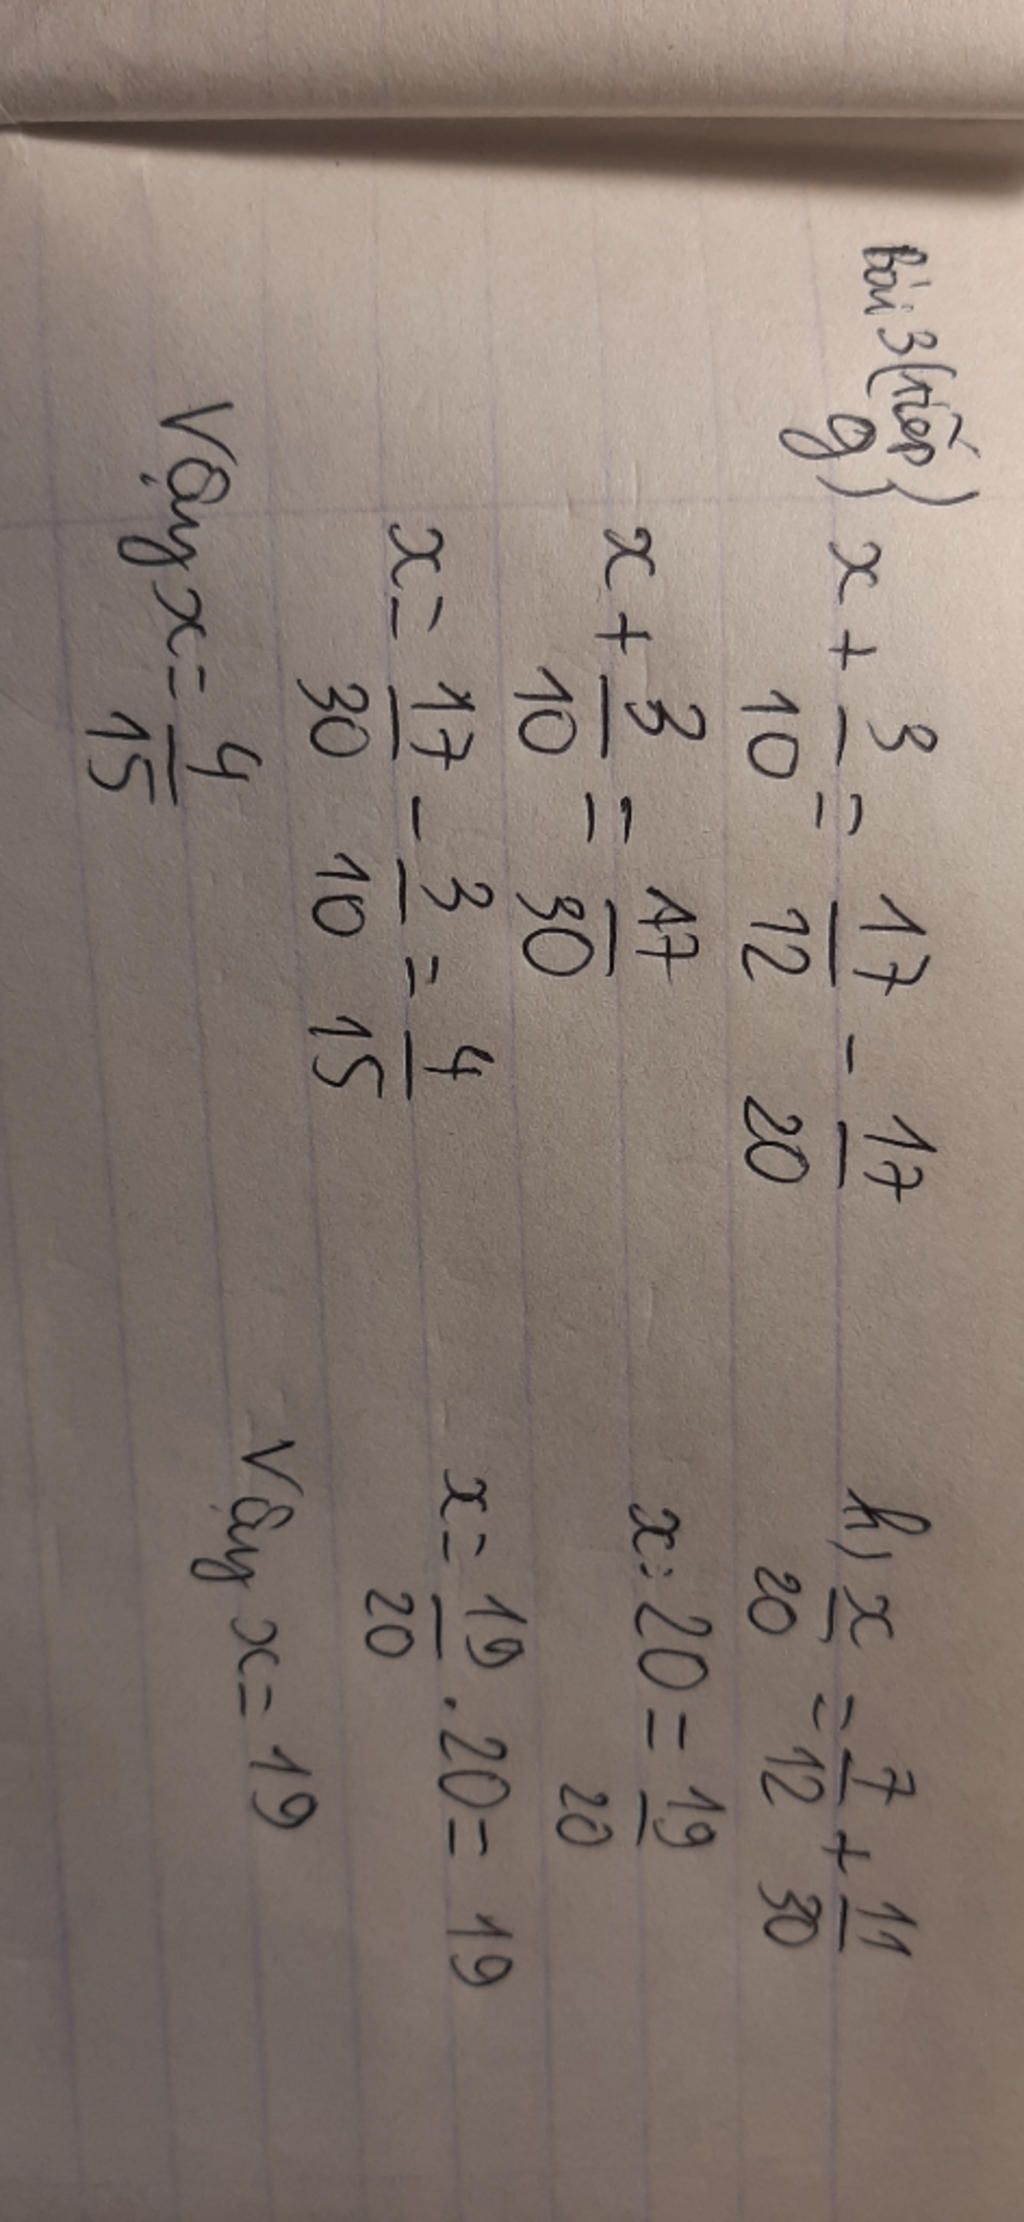 Bài 3 (tiếp)
g) x + 3/10 = 17/12 - 17/20
x + 3/10 = 17/30
x = 17/30 - 3/10 = 4/15
Vậy x = 4/15
h, x/20 = 7/12 + 11/30
x : 20 = 19/20
x = 19/20 . 20 = 19
Vậy x = 19